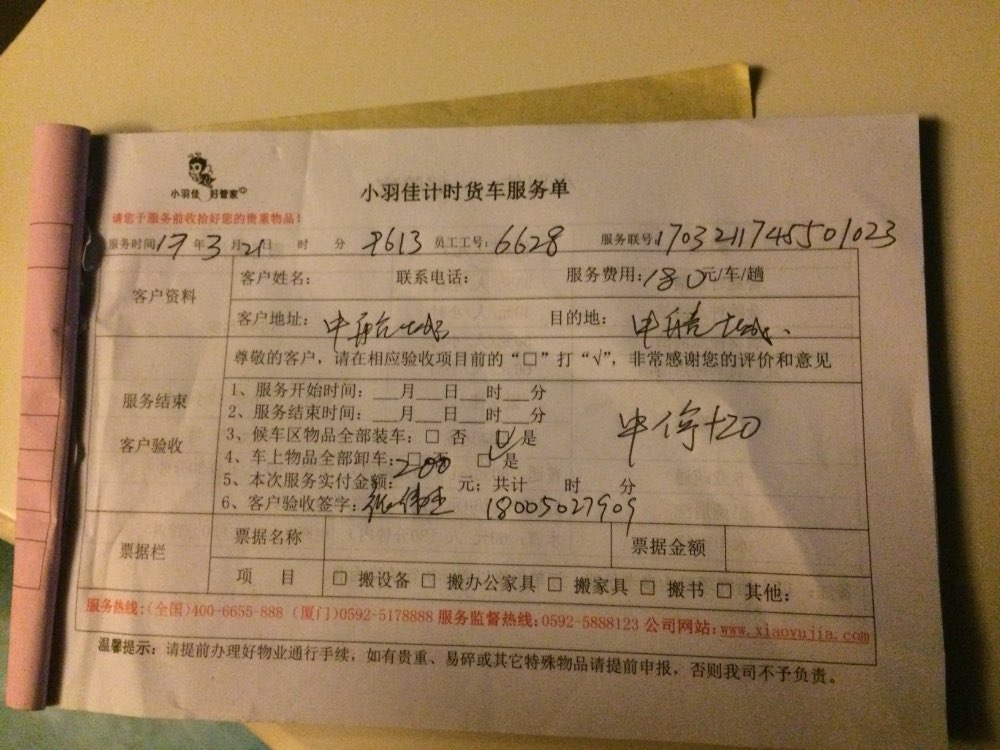 小羽佳 好管家
小羽佳计时货车服务单
请您于服务前收拾好您的贵重物品！
服务时间 17 年 3 月 21 日 时 分 9613 员工工号：6628 服务联号：1703211745501023
客户资料
客户姓名： 联系电话： 服务费用：180元/车/趟
客户地址：中航城 目的地：中航城
服务结束
客户验收
尊敬的客户，请在相应验收项目前的“□”打“√”，非常感谢您的评价和意见
1、服务开始时间：___月___日___时___分
2、服务结束时间：___月___日___时___分
3、候车区物品全部装车：□ 否 □√是
4、车上物品全部卸车：□ 否 □ 是
中停+20
5、本次服务实付金额：200 元；共计 时 分
6、客户验收签字： 18005027909
票据栏
票据名称 票据金额
项 目 □ 搬设备 □ 搬办公家具 □ 搬家具 □ 搬书 □ 其他：
服务热线：(全国)400-6655-888 (厦门)0592-5178888 服务监督热线：0592-5888123 公司网站：www.xiaoyujia.com
温馨提示：请提前办理好物业通行手续，如有贵重、易碎或其它特殊物品请提前申报，否则我司不予负责。